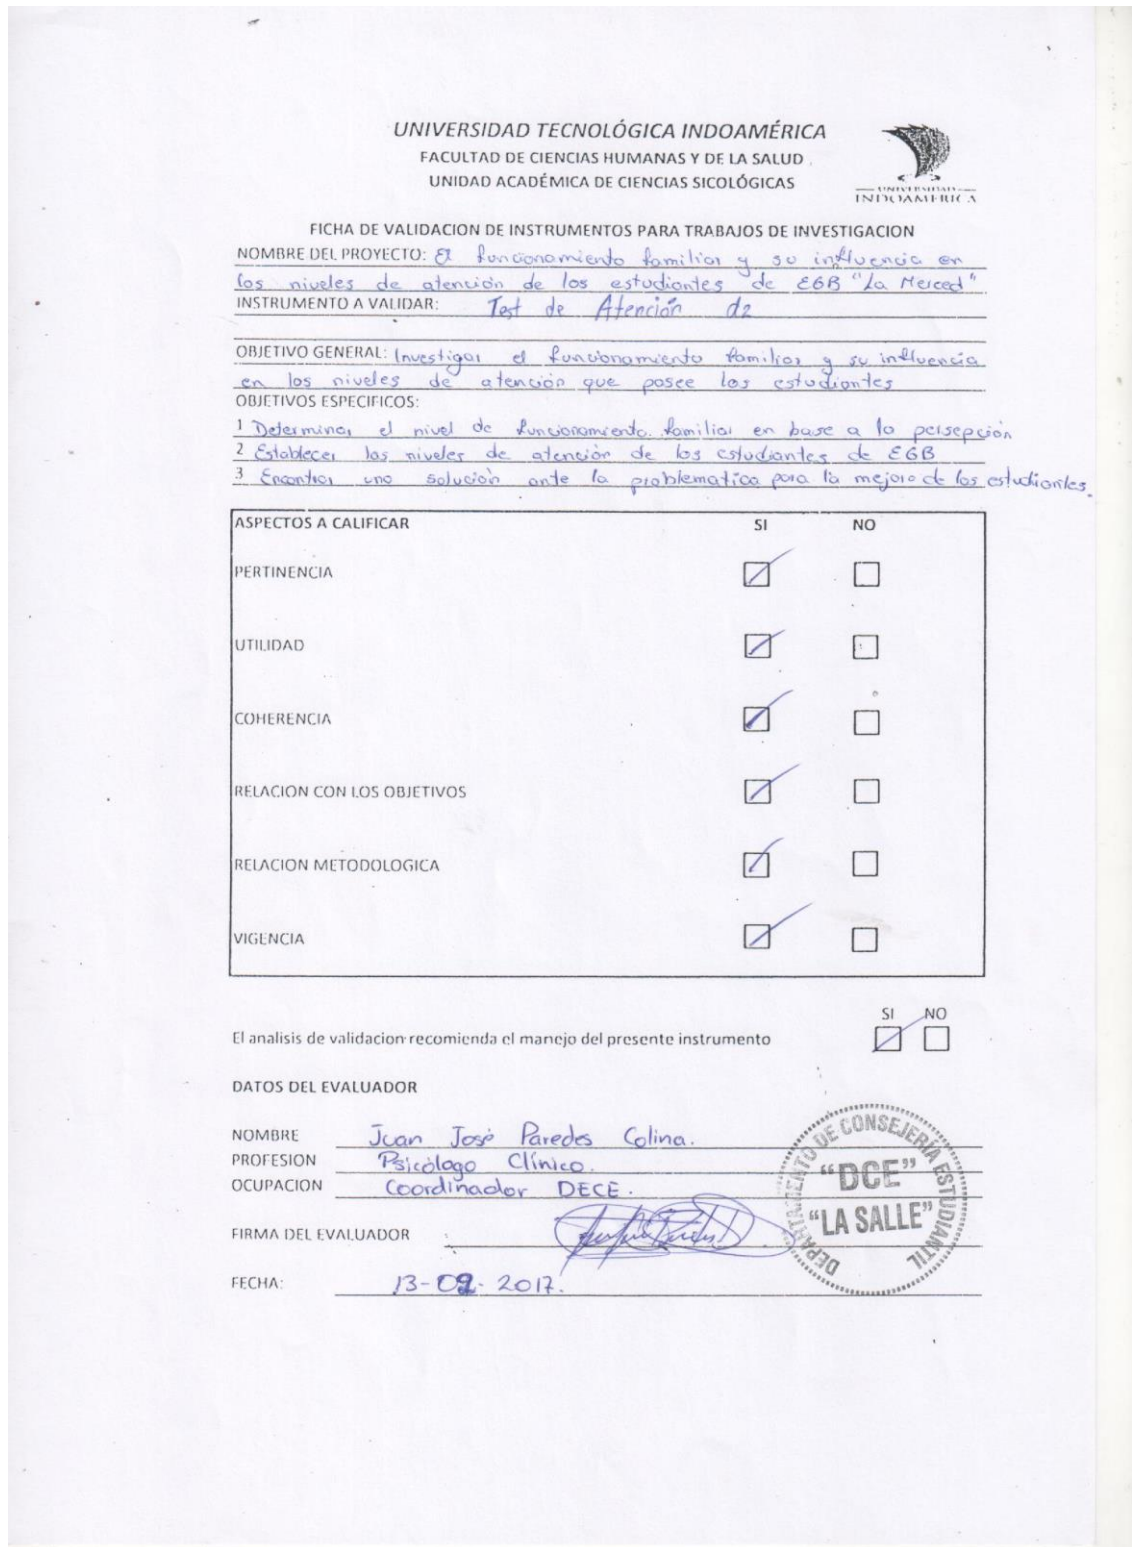 UNIVERSIDAD TECNOLÓGICA INDOAMÉRICA
FACULTAD DE CIENCIAS HUMANAS Y DE LA SALUD
UNIDAD ACADÉMICA DE CIENCIAS SICOLÓGICAS
UNIVERSIDAD
INDOAMERICA
FICHA DE VALIDACION DE INSTRUMENTOS PARA TRABAJOS DE INVESTIGACION
NOMBRE DEL PROYECTO: El funcionamiento familiar y su influencia en
los niveles de atención de los estudiantes de EGB "La Merced"
INSTRUMENTO A VALIDAR: Test de Atención d2
OBJETIVO GENERAL: Investigar el funcionamiento familiar y su influencia
en los niveles de atención que posee los estudiantes
OBJETIVOS ESPECIFICOS:
1 Determinar el nivel de funcionamiento familiar en base a la persepción
2 Establecer los niveles de atención de los estudiantes de EGB
3 Encontrar una solución ante la problematica para la mejora de los estudiantes.
ASPECTOS A CALIFICAR SI NO
PERTINENCIA
UTILIDAD
COHERENCIA
RELACION CON LOS OBJETIVOS
RELACION METODOLOGICA
VIGENCIA
SI NO
El analisis de validacion recomienda el manejo del presente instrumento
DATOS DEL EVALUADOR
NOMBRE Juan José Paredes Colina.
PROFESION Psicólogo Clínico.
OCUPACION Coordinador DECE.
FIRMA DEL EVALUADOR
FECHA: 13-02-2017.
DEPARTAMENTO DE CONSEJERÍA ESTUDIANTIL
"DCE"
"LA SALLE"